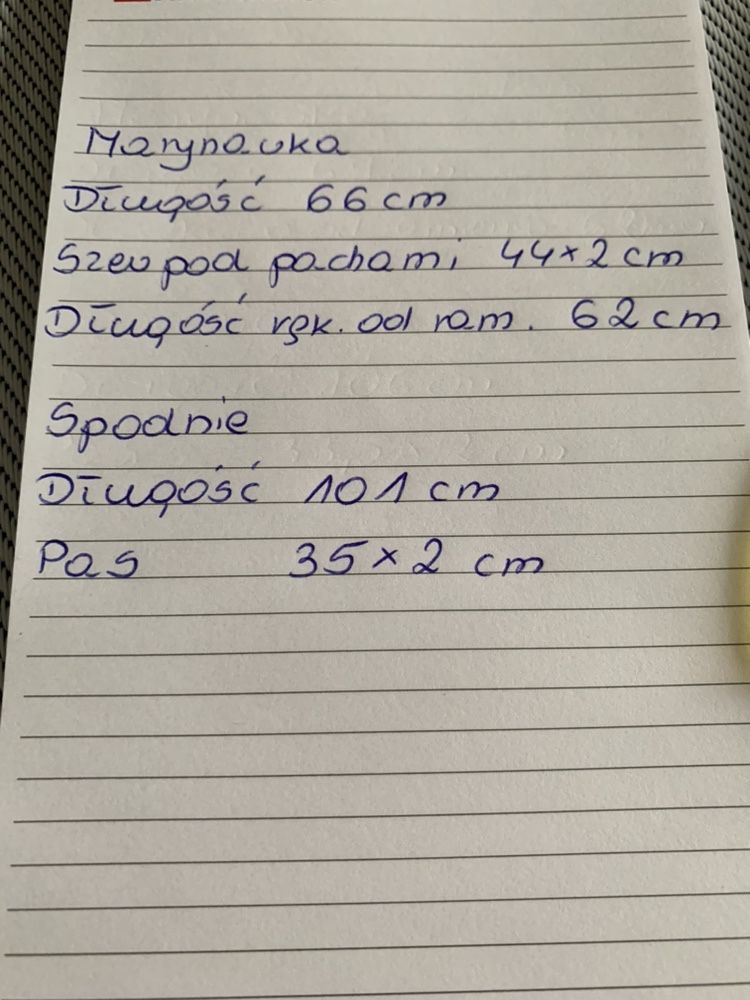 Marynarka
Długość 66 cm
Szew pod pachami 44×2 cm
Długość ręk. od ram. 62 cm
Spodnie
Długość 101 cm
Pas 35×2 cm